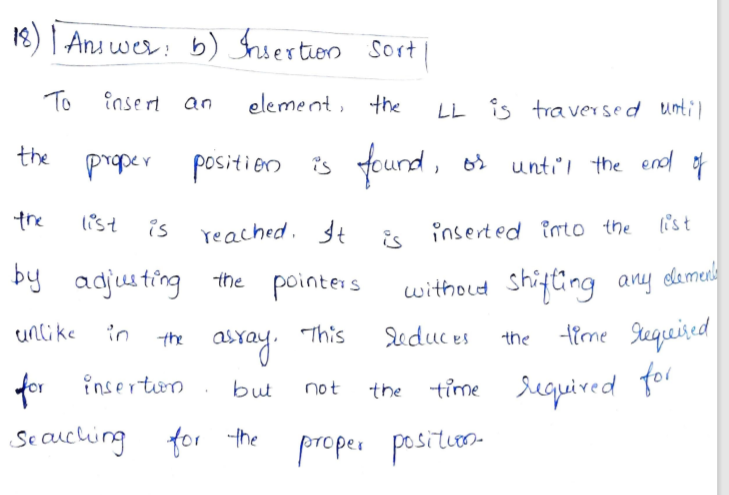 18) Answer: b) Insertion Sort
To insert an element, the LL is traversed until
the proper position is found, or until the end of
the list is reached. It is inserted into the list
by adjusting the pointers without shifting any elements
unlike in the array. This reduces the time required
for insertion. but not the time required for
searching for the proper position.